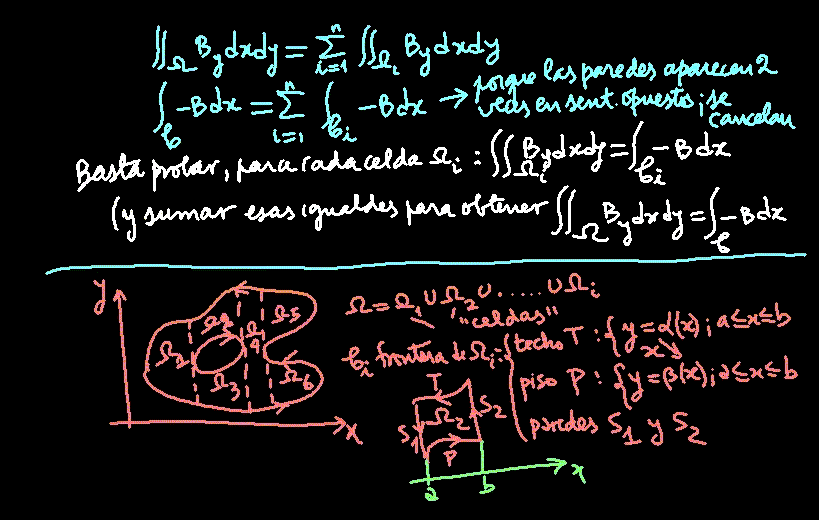 ∬_Ω B_y dxdy = Σ_{i=1}^{n} ∬_{Ω_i} B_y dxdy
∫_𝒞 -B dx = Σ_{i=1}^{n} ∫_{𝒞_i} -B dx → porque las paredes aparecen 2
veces en sent. opuestos; se
cancelan
Basta probar, para cada celda Ω_i : ∬_{Ω_i} B_y dxdy = ∫_{𝒞_i} -B dx
(y sumar esas igualdes para obtener ∬_Ω B_y dxdy = ∫_𝒞 -B dx
y
Ω = Ω_1 ∪ Ω_2 ∪ ...... ∪ Ω_i
"celdas"
𝒞_i frontera de Ω_i = { techo T : { y = α(x) ; a ≤ x ≤ b
x↘
piso P : { y = β(x) ; a ≤ x ≤ b
paredes S_1 y S_2
Ω_2 Ω_3 Ω_4 Ω_5 Ω_6
x
T
S_1 Ω_2 S_2
P
a b x